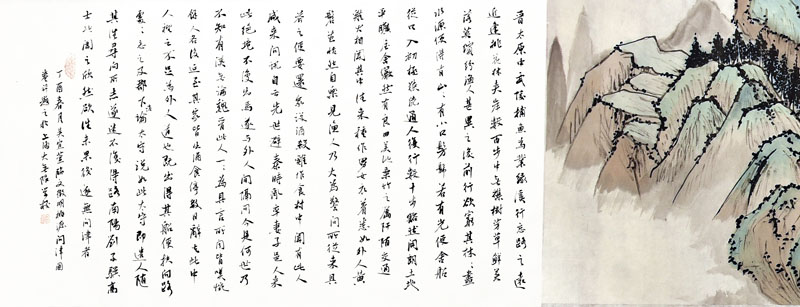 晋太原中武陵捕魚為業緣溪行忘路之遠
近逢桃花林夾岸數百步中無襍樹芳草鮮美
落英繽紛漁人甚異之復前行欲窮其林林盡
水源便得有山山有小口髣髴若有光便舍船
從口入初極狹纔通人復行數十步豁然開朗土地
平曠屋舍儼然有良田美池桑竹之屬阡陌交通
雞犬相聞其中往來種作男女衣著悉如外人黃
髮垂髫怡然自樂見漁人乃大驚問所從來具
答之便要還家設酒殺雞作食村中聞有此人
咸來問訊自云先世避秦時亂率妻子邑人來
此絕境不復出焉遂與外人間隔問今是何世乃
不知有漢無論魏晋此人一一為具言所聞皆嘆惋
餘人各復延至其家皆出酒食停數日辭去此中
人語云不足為外人道也既出得其船便扶向路
處處志之及郡下詣太守說如此太守即遣人隨
其往尋向所志遂迷不復得路南陽劉子驥高
士也聞之欣然欲往未果後遂無問津者
丁酉春月吳宏臨文徵明桃源問津圖
卷并題之於上海大